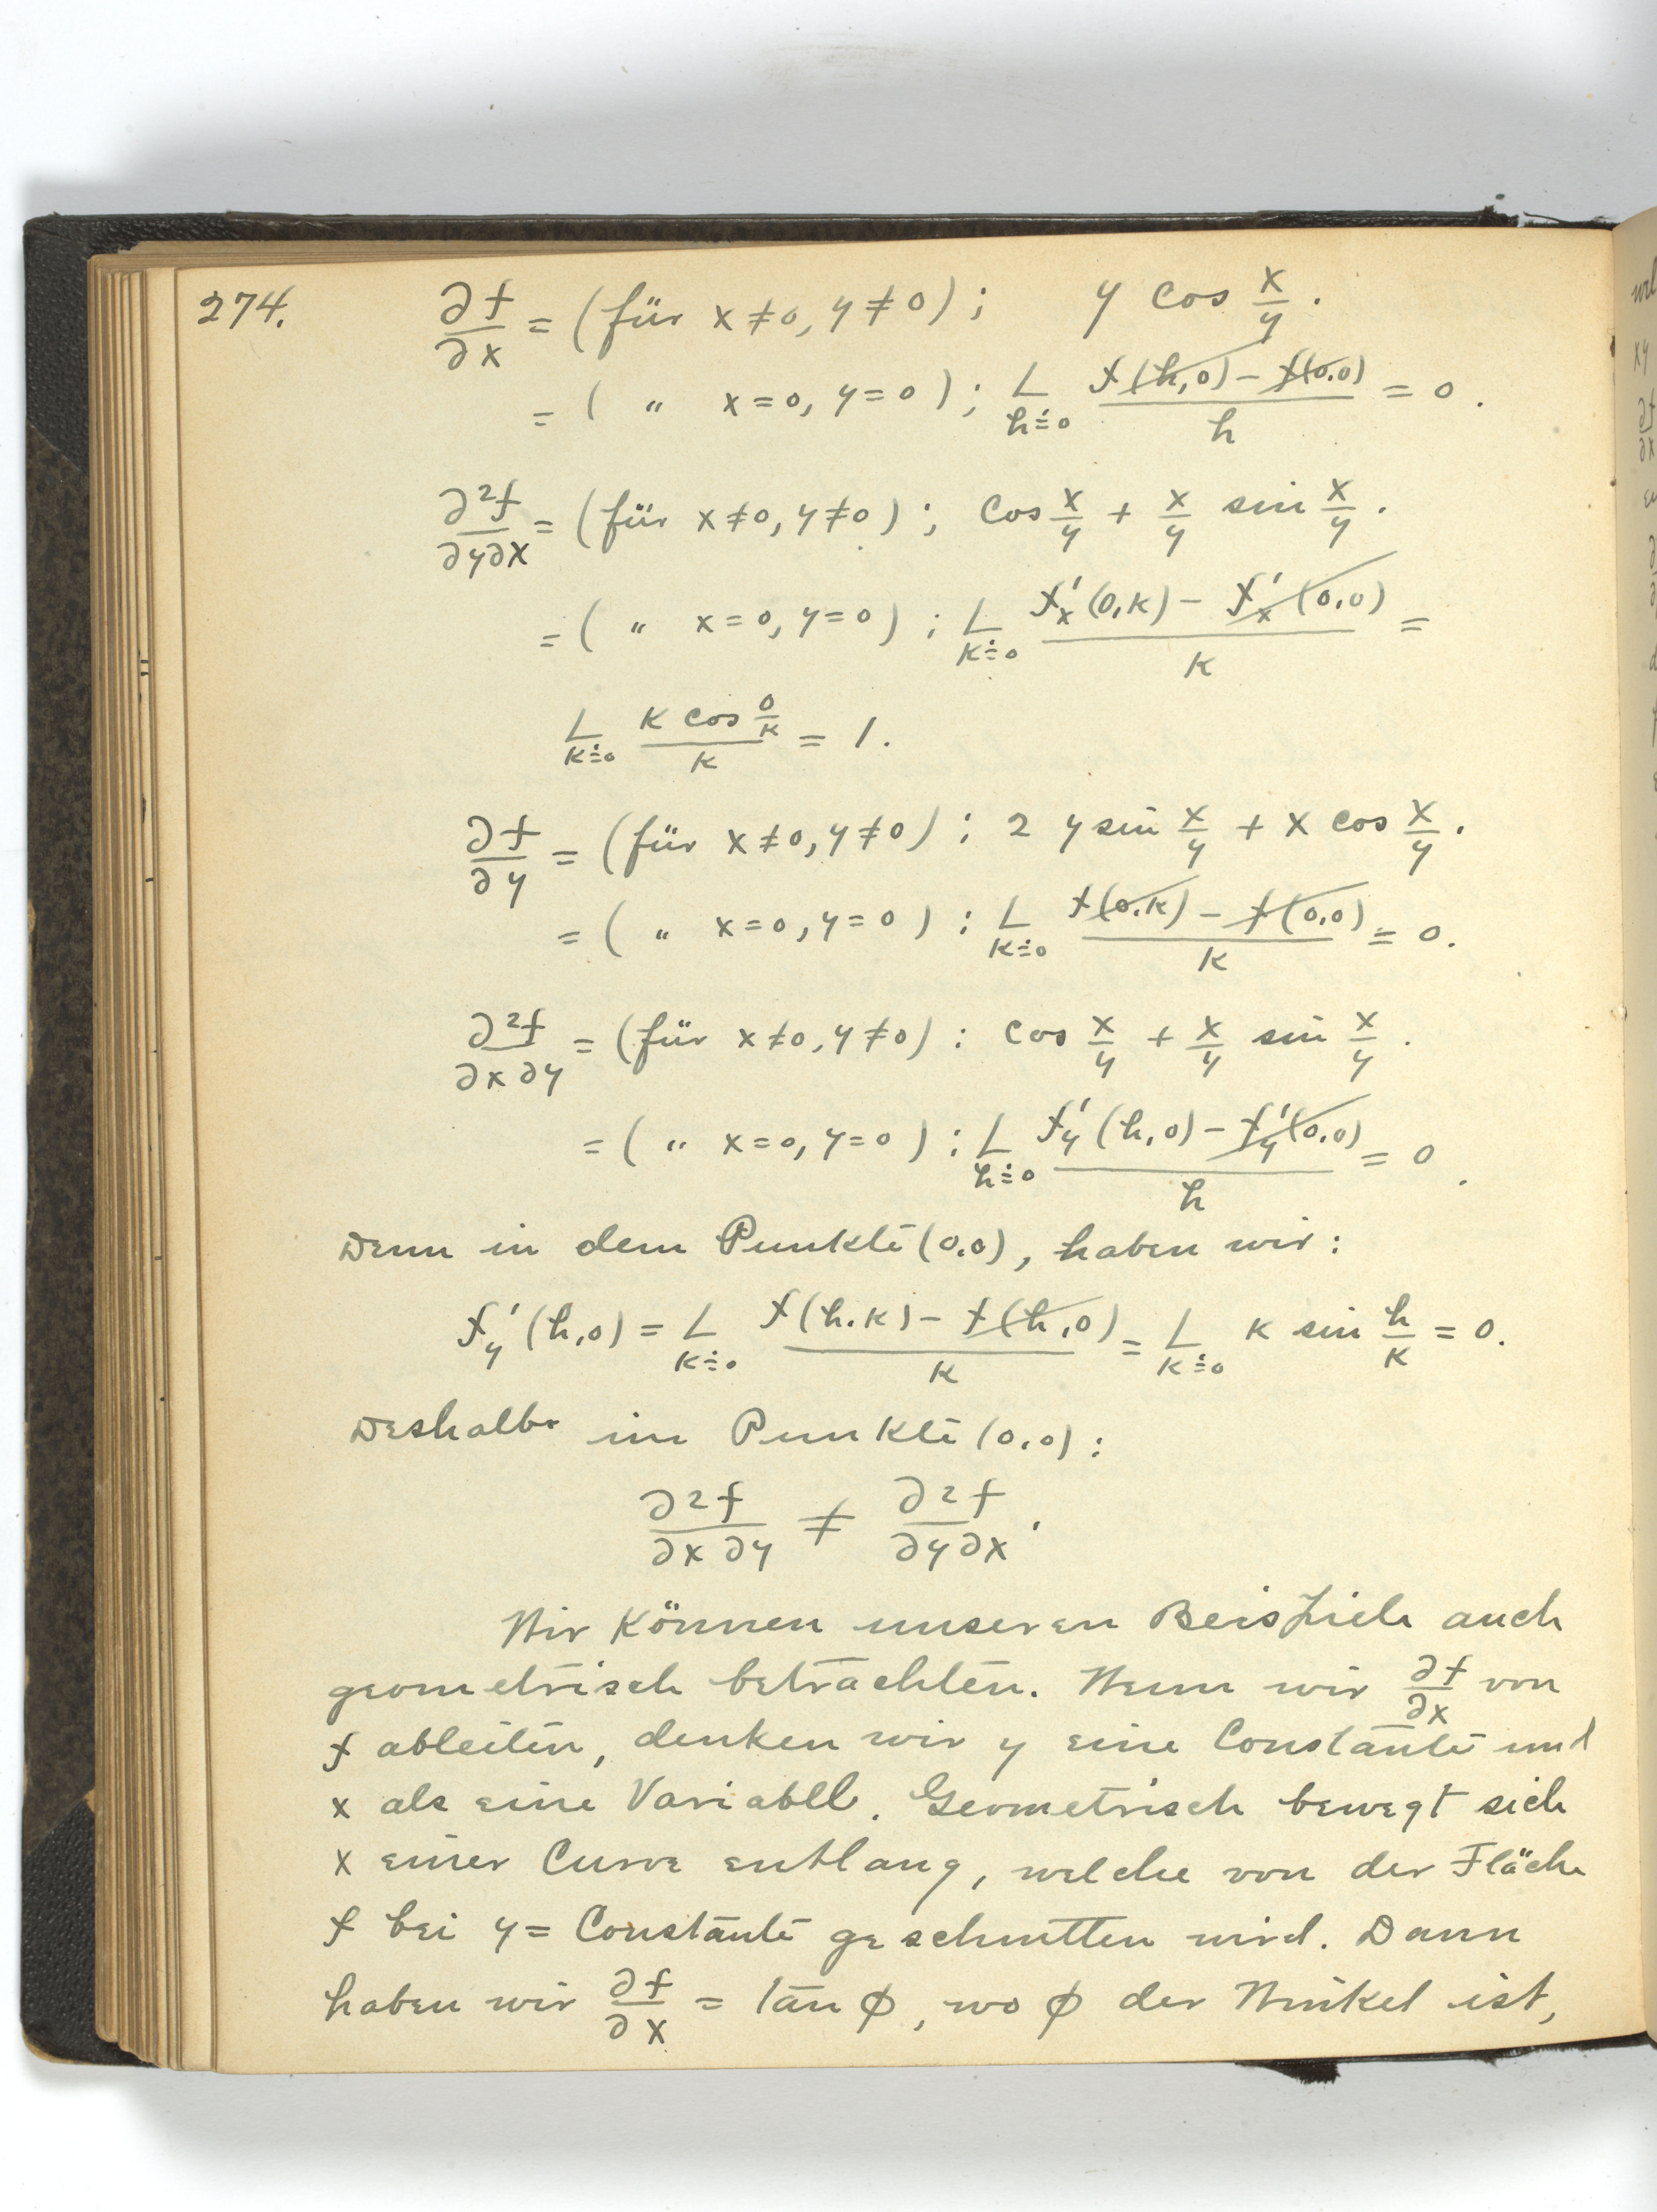 274. ∂f/∂x = (für x≠0, y≠0); y cos x/y.
= ( " x=0, y=0 ); L h≐0 f(h,0) − f(0,0) / h = 0.
∂²f/∂y∂x = (für x≠0, y≠0); cos x/y + x/y sin x/y.
= ( " x=0, y=0 ); L k≐0 f'x(0,k) − f'x(0,0) / k =
L k≐0 k cos 0/k / k = 1.
∂f/∂y = (für x≠0, y≠0): 2 y sin x/y + x cos x/y.
= ( " x=0, y=0 ): L k≐0 f(0,k) − f(0,0) / k = 0.
∂²f/∂x∂y = (für x≠0, y≠0): cos x/y + x/y sin x/y.
= ( " x=0, y=0 ): L h≐0 f'y(h,0) − f'y(0,0) / h = 0.
Denn in dem Punkte (0.0), haben wir:
f'y(h,0) = L k≐0 f(h.k) − f(h,0) / k = L k≐0 k sin h/k = 0.
Deshalb im Punkte (0.0):
∂²f/∂x∂y ≠ ∂²f/∂y∂x.
Wir können unseren Beispiele auch
geometrisch betrachten. Wenn wir ∂f/∂x von
f ableiten, denken wir y eine Constante und
x als eine Variabll. Geometrisch bewegt sich
x einer Curve entlang, welche von der Fläche
f bei y = Constante geschnitten wird. Dann
haben wir ∂f/∂x = tan ϕ, wo ϕ der Winkel ist,